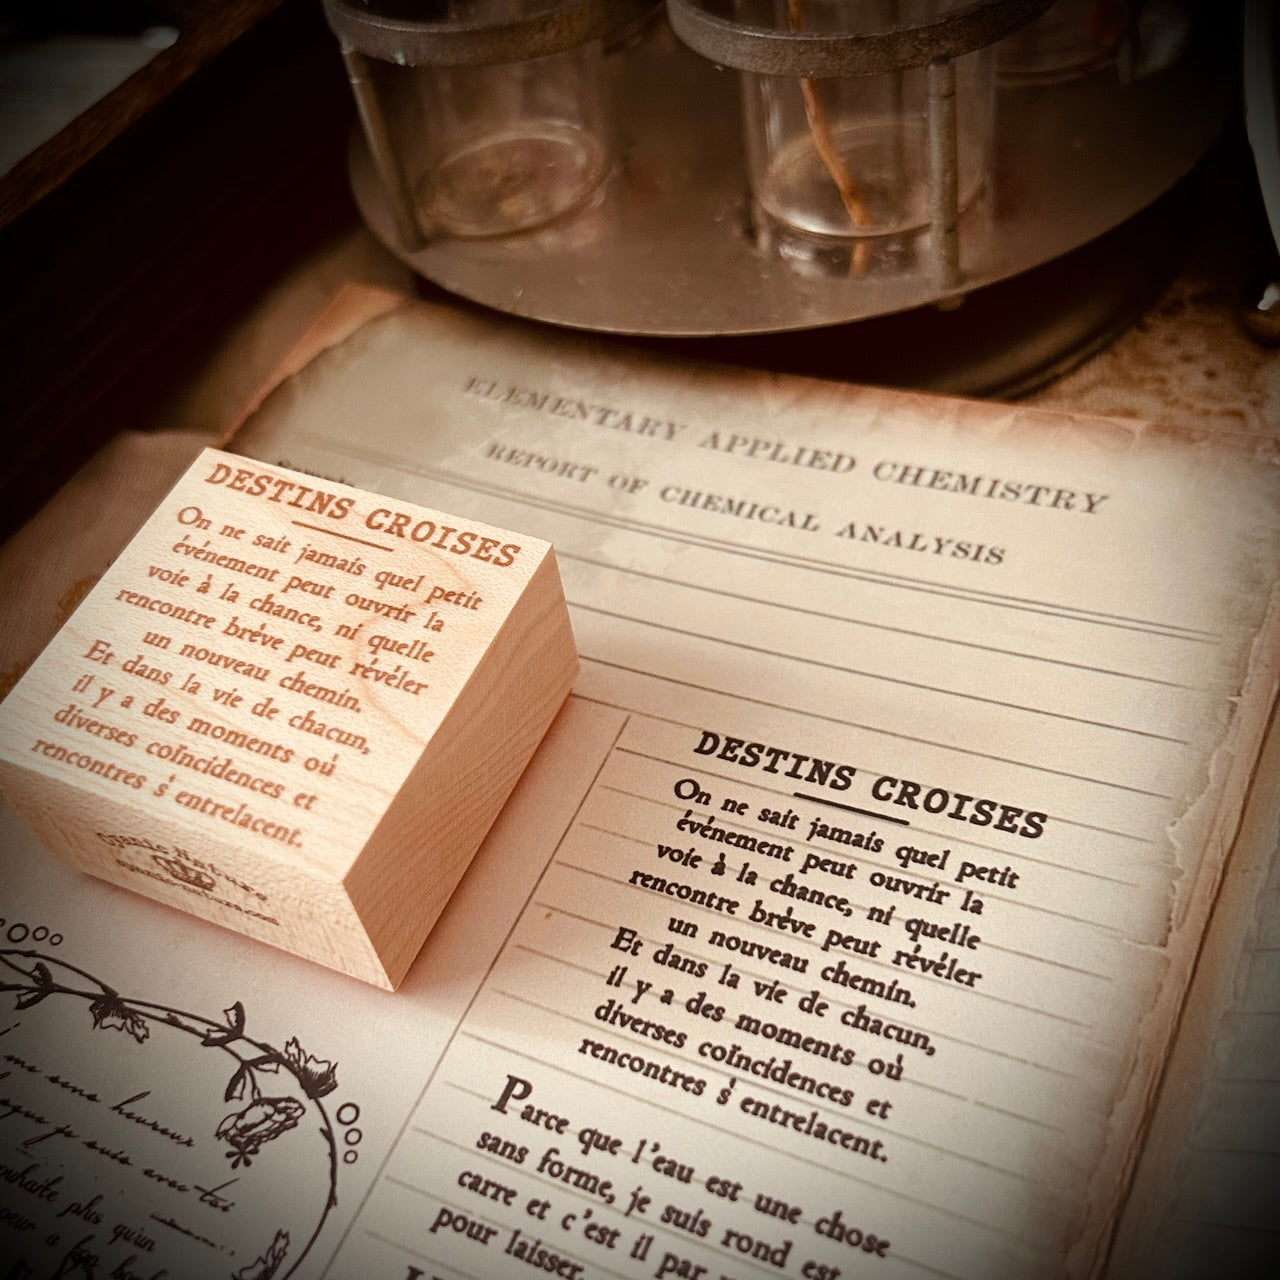 ELEMENTARY APPLIED CHEMISTRY
REPORT OF CHEMICAL ANALYSIS
DESTINS CROISES
On ne sait jamais quel petit
événement peut ouvrir la
voie à la chance, ni quelle
rencontre brève peut révéler
un nouveau chemin.
Et dans la vie de chacun,
il y a des moments où
diverses coïncidences et
rencontres s'entrelacent.
DESTINS CROISES
On ne sait jamais quel petit
événement peut ouvrir la
voie à la chance, ni quelle
rencontre brève peut révéler
un nouveau chemin.
Et dans la vie de chacun,
il y a des moments où
diverses coïncidences et
rencontres s'entrelacent.
Parce que l'eau est une chose
sans forme, je suis rond est
carré et c'est il par
pour laisser.
me sens heureux
que je suis avec toi
plus qu'un